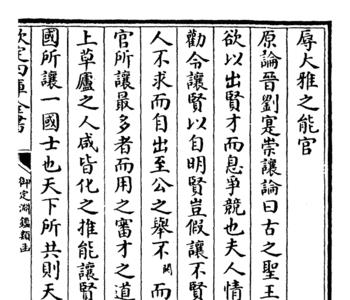 辱大雅之能官
原論晉劉寔崇讓論曰古之聖王
欲以出賢才而息爭競也夫人情
勸令讓賢以自明賢豈假讓不賢
人不求而自出至公之舉不闕而
官所讓最多者而用之審才之道
上草廬之人咸皆化之推能讓賢
國所讓一國士也天下所共則天
欽定四庫全書
御定淵鑑類函